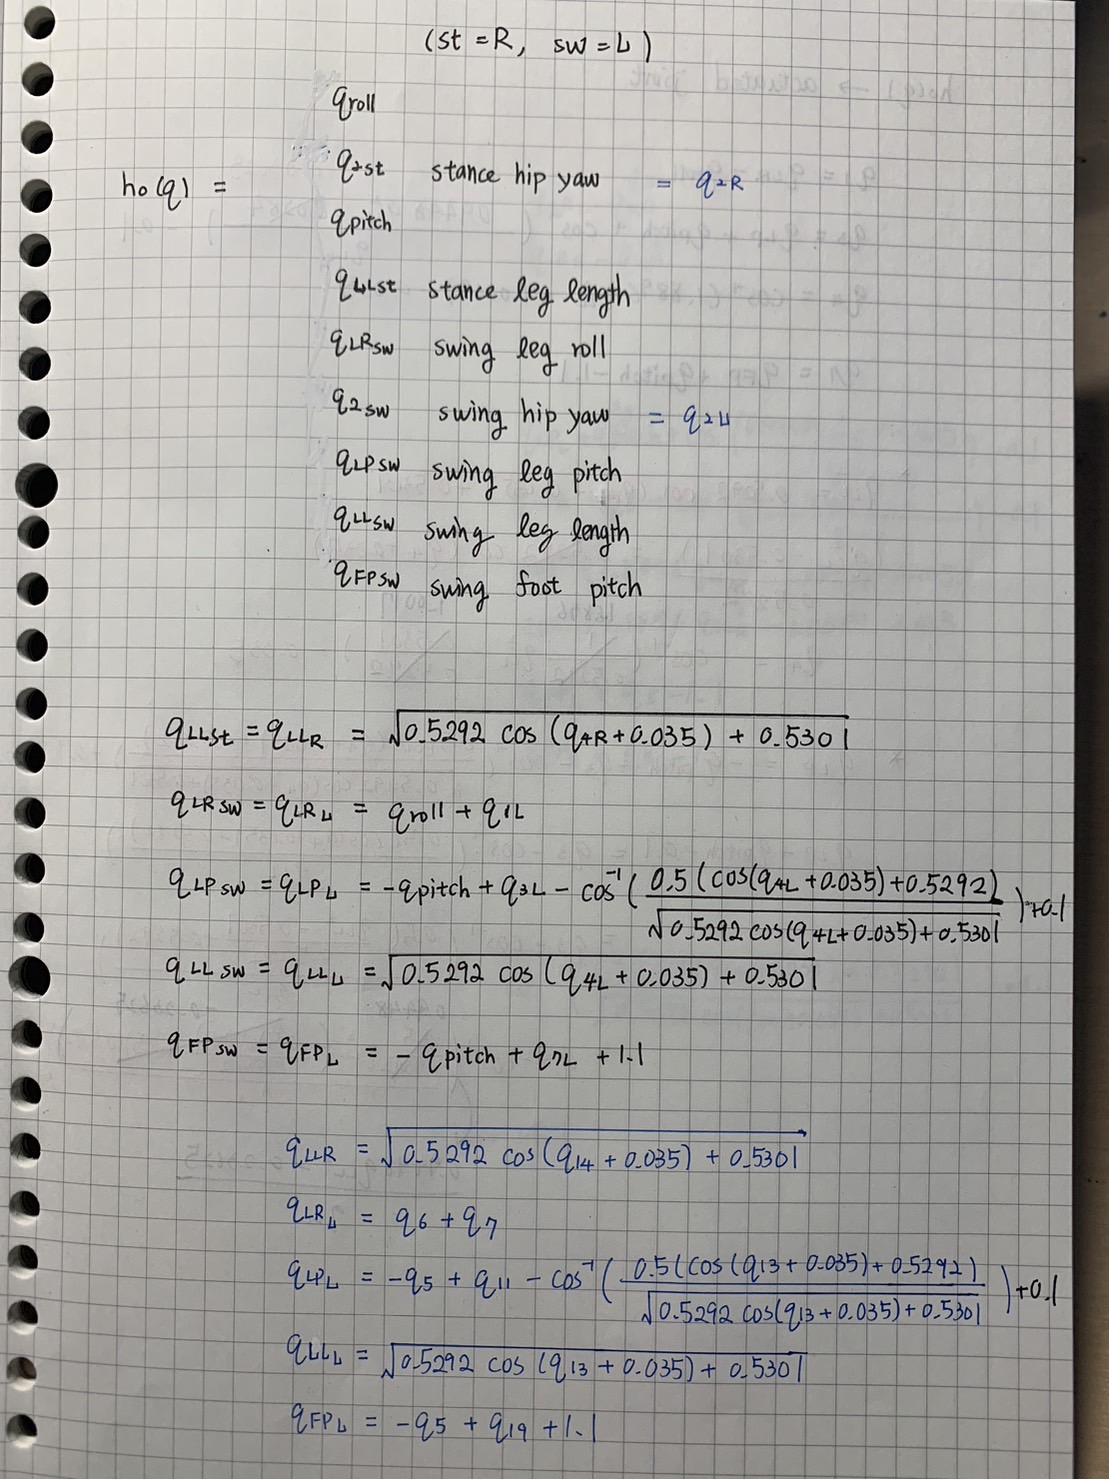 (st = R, sw = L)
qroll
q2st stance hip yaw = q2R
h0(q) =
qpitch
qLLst stance leg length
qLRsw swing leg roll
q2sw swing hip yaw = q2L
qLPsw swing leg pitch
qLLsw swing leg length
qFPsw swing foot pitch
qLLst = qLLR = √(0.5292 cos (q4R + 0.035) + 0.5301)
qLRsw = qLRL = qroll + q1L
qLPsw = qLPL = -qpitch + q3L - cos⁻¹ ( 0.5 (cos(q4L + 0.035) + 0.5292) / √(0.5292 cos(q4L + 0.035) + 0.5301) ) + 0.1
qLLsw = qLLL = √(0.5292 cos (q4L + 0.035) + 0.5301)
qFPsw = qFPL = - qpitch + q7L + 1.1
qLLR = √(0.5292 cos (q14 + 0.035) + 0.5301)
qLRL = q6 + q7
qLPL = -q5 + q11 - cos⁻¹ ( 0.5 (cos (q13 + 0.035) + 0.5292) / √(0.5292 cos(q13 + 0.035) + 0.5301) ) + 0.1
qLLL = √(0.5292 cos (q13 + 0.035) + 0.5301)
qFPL = -q5 + q19 + 1.1